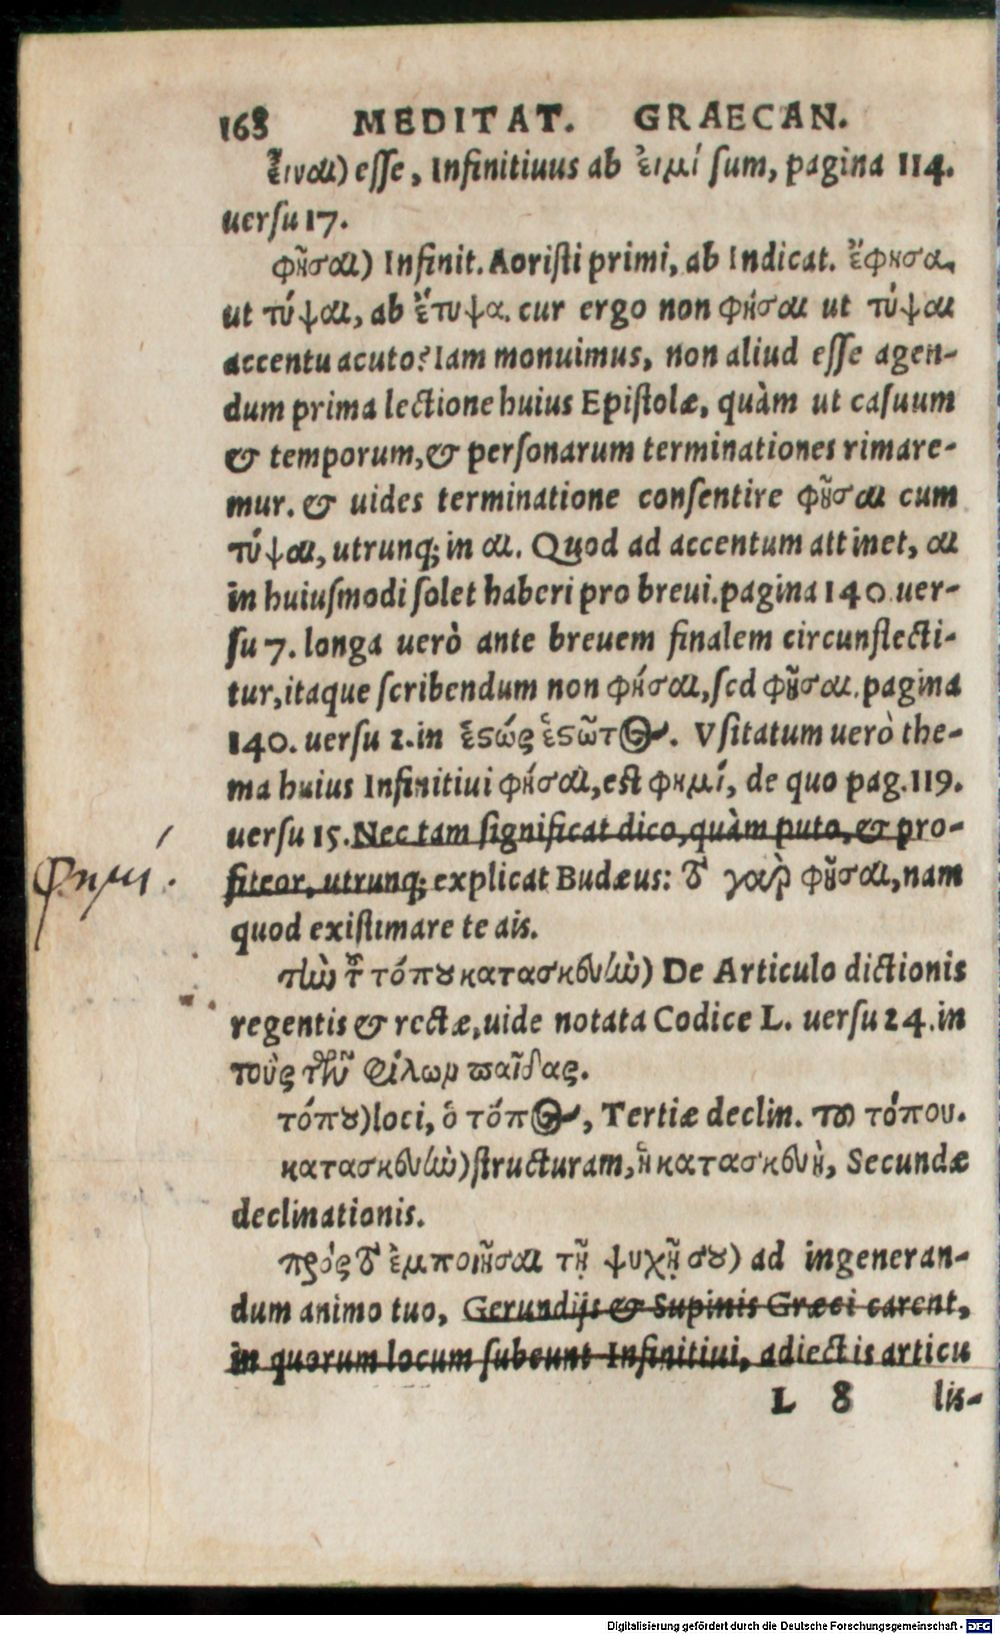 168 MEDITAT. GRAECAN.
εἶναι) esse, Infinitiuus ab εἰμί sum, pagina 114.
uersu 17.
φῆσαι) Infinit. Aoristi primi, ab Indicat. ἔφησα,
ut τύψαι, ab ἔτυψα. cur ergo non φήσαι ut τύψαι
accentu acuto? Iam monuimus, non aliud esse agen-
dum prima lectione huius Epistolæ, quàm ut casuum
& temporum, & personarum terminationes rimare-
mur. & uides terminatione consentire φῆσαι cum
τύψαι, utrunq; in αι. Quod ad accentum attinet, αι
in huiusmodi solet haberi pro breui. pagina 140. uer-
su 7. longa uerò ante breuem finalem circunflecti-
tur, itaque scribendum non φήσαι, sed φῆσαι. pagina
140. uersu 2. in ἑστώς ἑστῶτος. Vsitatum uerò the-
ma huius Infinitiui φήσαι, est φημί, de quo pag. 119.
uersu 15. Nec tam significat dico, quàm puto, & pro-
fiteor, utrunq; explicat Budæus: τὸ γὰρ φῆσαι, nam
φημί.
quod existimare te ais.
τὴν τοῦ τόπου κατασκευὴν) De Articulo dictionis
regentis & rectæ, uide notata Codice L. uersu 24. in
τοὺς τῶν φίλων παῖδας.
τόπου) loci, ὁ τόπος, Tertiæ declin. τοῦ τόπου.
κατασκευὴν) structuram, ἡ κατασκευὴ, Secundæ
declinationis.
πρὸς τὸ ἐμποιῆσαι τῇ ψυχῇ σου) ad ingeneran-
dum animo tuo, Gerundijs & Supinis Græci carent,
in quorum locum subeunt Infinitiui, adiectis articu
L 8 lis-
Digitalisierung gefördert durch die Deutsche Forschungsgemeinschaft - DFG